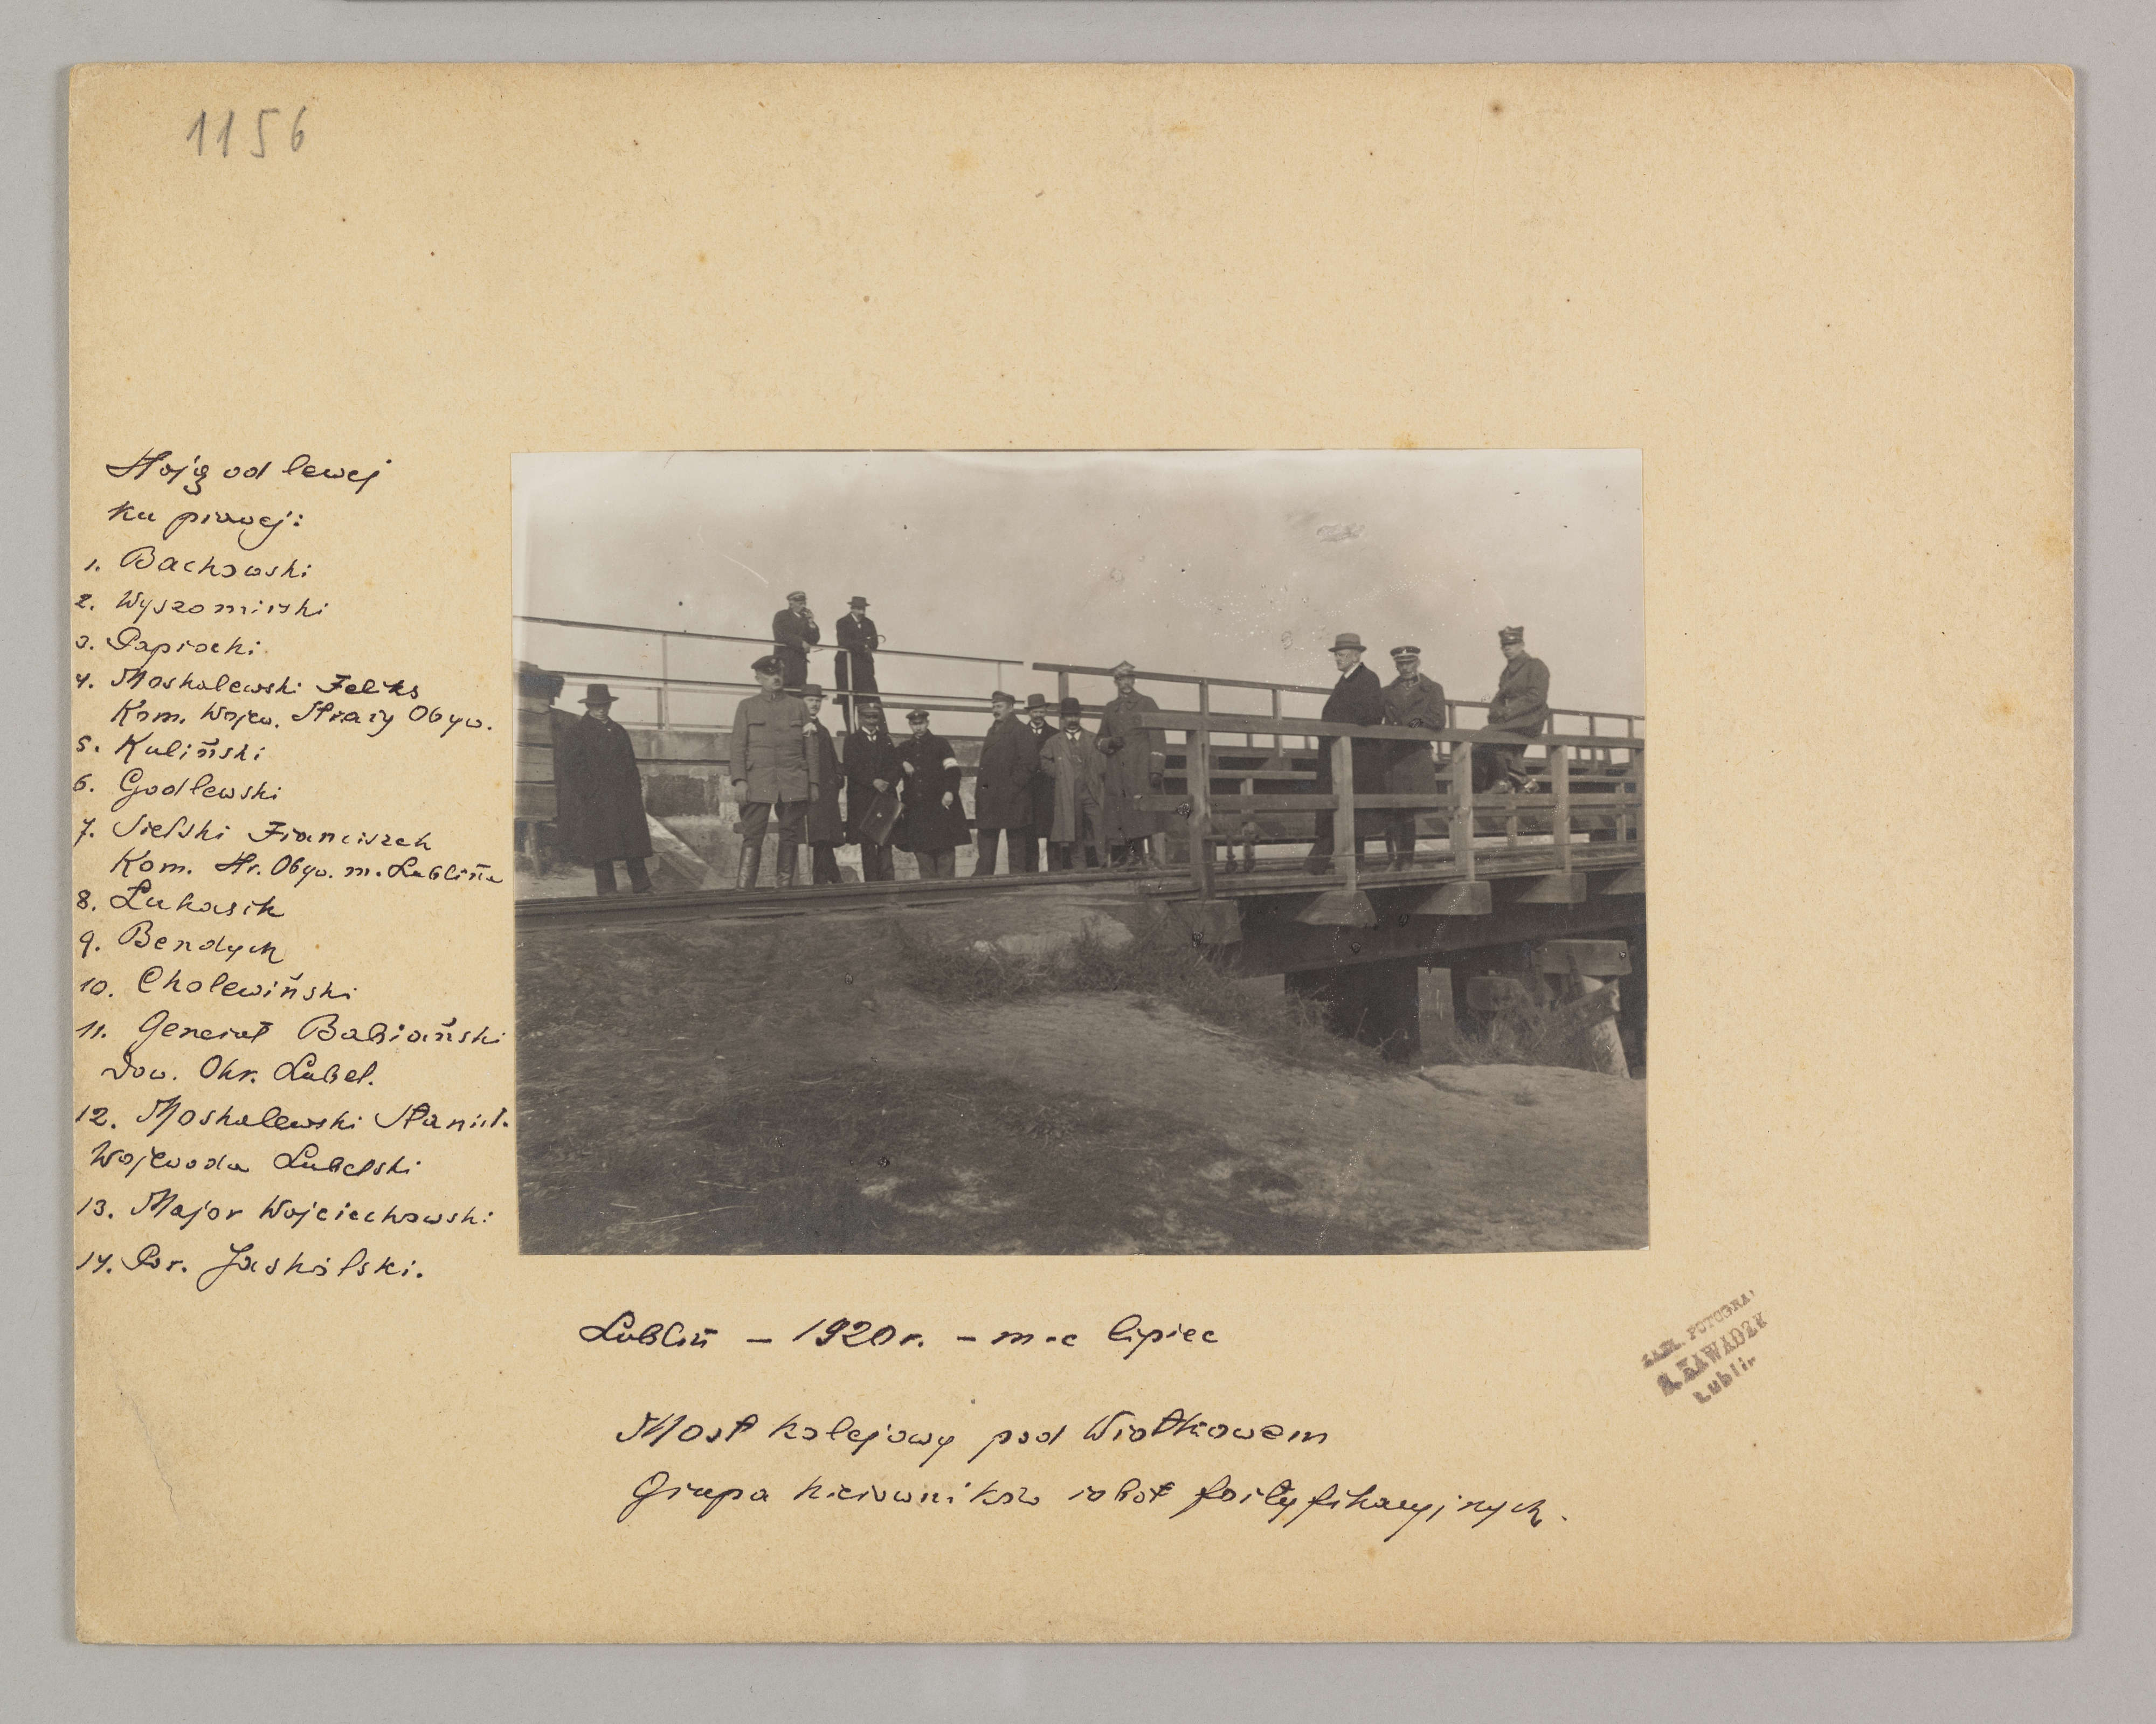 1156
Stoją od lewej
ku prawej:
1. Bachowski
2. Wyszomirski
3. Paprocki
4. Moskalewski Feliks
Kom. Wojew. Straży Obyw.
5. Kuliński
6. Godlewski
7. Sielski Franciszek
Kom. Str. Obyw. m. Lublina
8. Łukasik
9. Bendych
10. Cholewiński
11. Generał Babiański
Dow. Okr. Lubel.
12. Moskalewski Stanisł.
Wojewoda Lubelski
13. Major Wojciechowski
14. Por. Jaskólski.
Lublin – 1920 r. – m-c lipiec
Most kolejowy pod
Grupa kierowników robót fortyfikacyjnych.
ZAKŁ. FOTOGRA
KAWADZK
Lublin